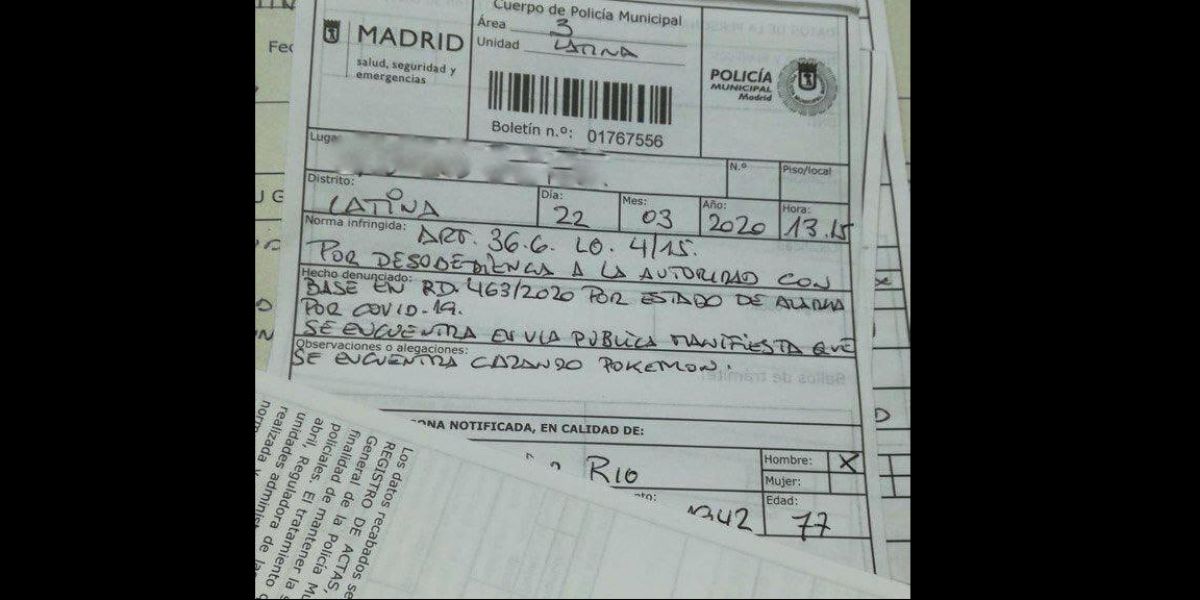 Cuerpo de Policía Municipal
MADRID
salud, seguridad y
emergencias
Área 3
Unidad LATINA
Boletín n.º: 01767556
POLICÍA
MUNICIPAL
Madrid
Fec
Lugar
N.º
Piso/local
Distrito:
LATINA
Día:
22
Mes:
03
Año:
2020
Hora:
13.15
Norma infringida: ART. 36.6. LO. 4/15.
POR DESOBEDIENCA A LA AUTORIDAD CON
Hecho denunciado:
BASE EN RD. 463/2020 POR ESTADO DE ALARMA
POR COVID-19.
SE ENCUENTRA EN VIA PUBLICA MANIFIESTA QUE
Observaciones o alegaciones:
SE ENCUENTRA CAZANDO POKEMON.
ONA NOTIFICADA, EN CALIDAD DE:
RIO
Hombre: X
Mujer:
Edad:
77
342
Los datos recabados se
REGISTRO DE ACTAS,
General de la Policía Mu
finalidad de mantener la s
policiales. El tratamiento
abril, Reguladora de la
unidades administ
realizada
norm